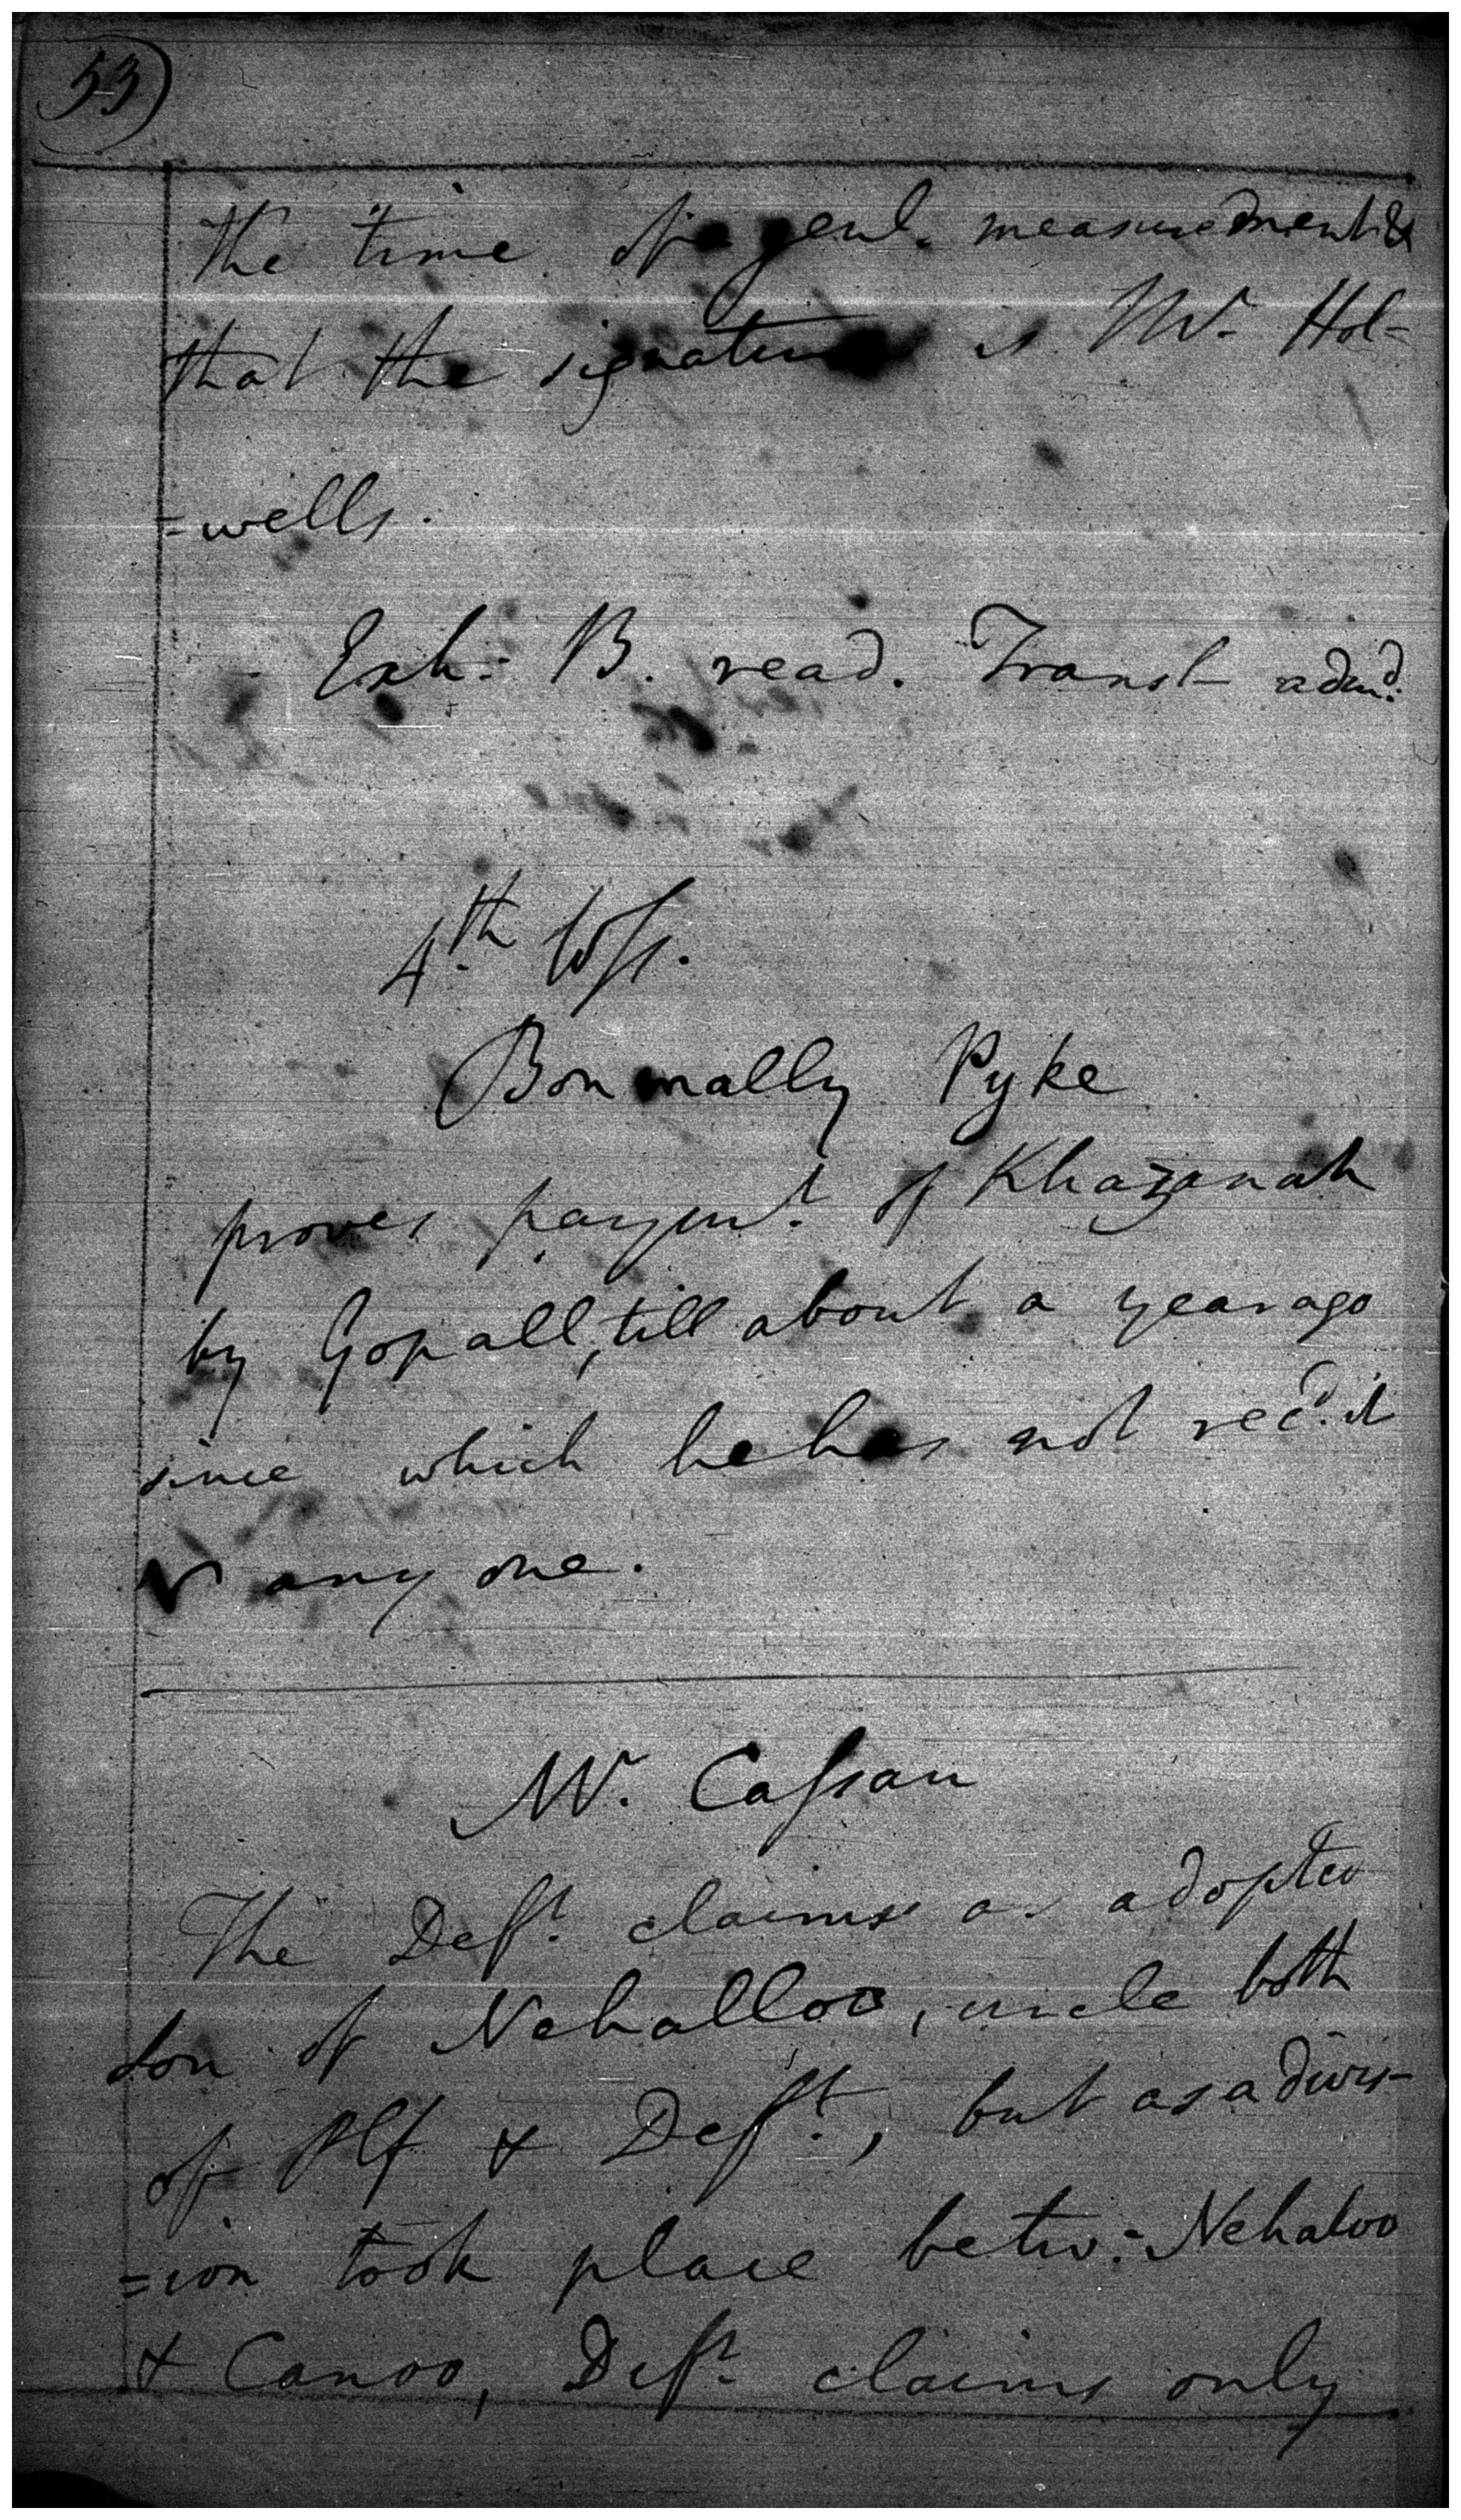 53)
the time of a genl. measurement &
that the signature is Mr. Hol-
=wells.
Exh: B. read. Transl admd.
4th Wss.
Bonmally Pyke
proves paymt. of Khazanah
by Gopall, till about a year ago
since which he has not recd. it
any one.
Mr. Cassan
The Deft. claims as adopted
son of Nehalloo, uncle both
of Plf & Deft., but as a divis-
=ion took place betw: Nehaloo
& Canoo, Deft. claims only